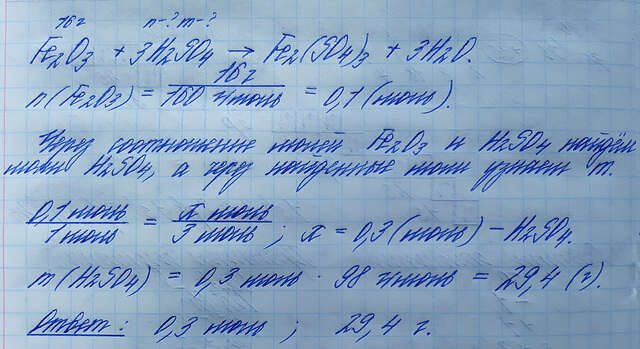 16 г n-? m-?
Fe₂O₃ + 3H₂SO₄ → Fe₂(SO₄)₃ + 3H₂O.
n(Fe₂O₃) = 16 г / 160 г/моль = 0,1 (моль).
Через соотношение молей Fe₂O₃ и H₂SO₄ найдём
моли H₂SO₄, а через найденные моли узнаем m.
0,1 моль / 1 моль = x моль / 3 моль ; x = 0,3 (моль) – H₂SO₄.
m(H₂SO₄) = 0,3 моль · 98 г/моль = 29,4 (г).
Ответ: 0,3 моль ; 29,4 г.